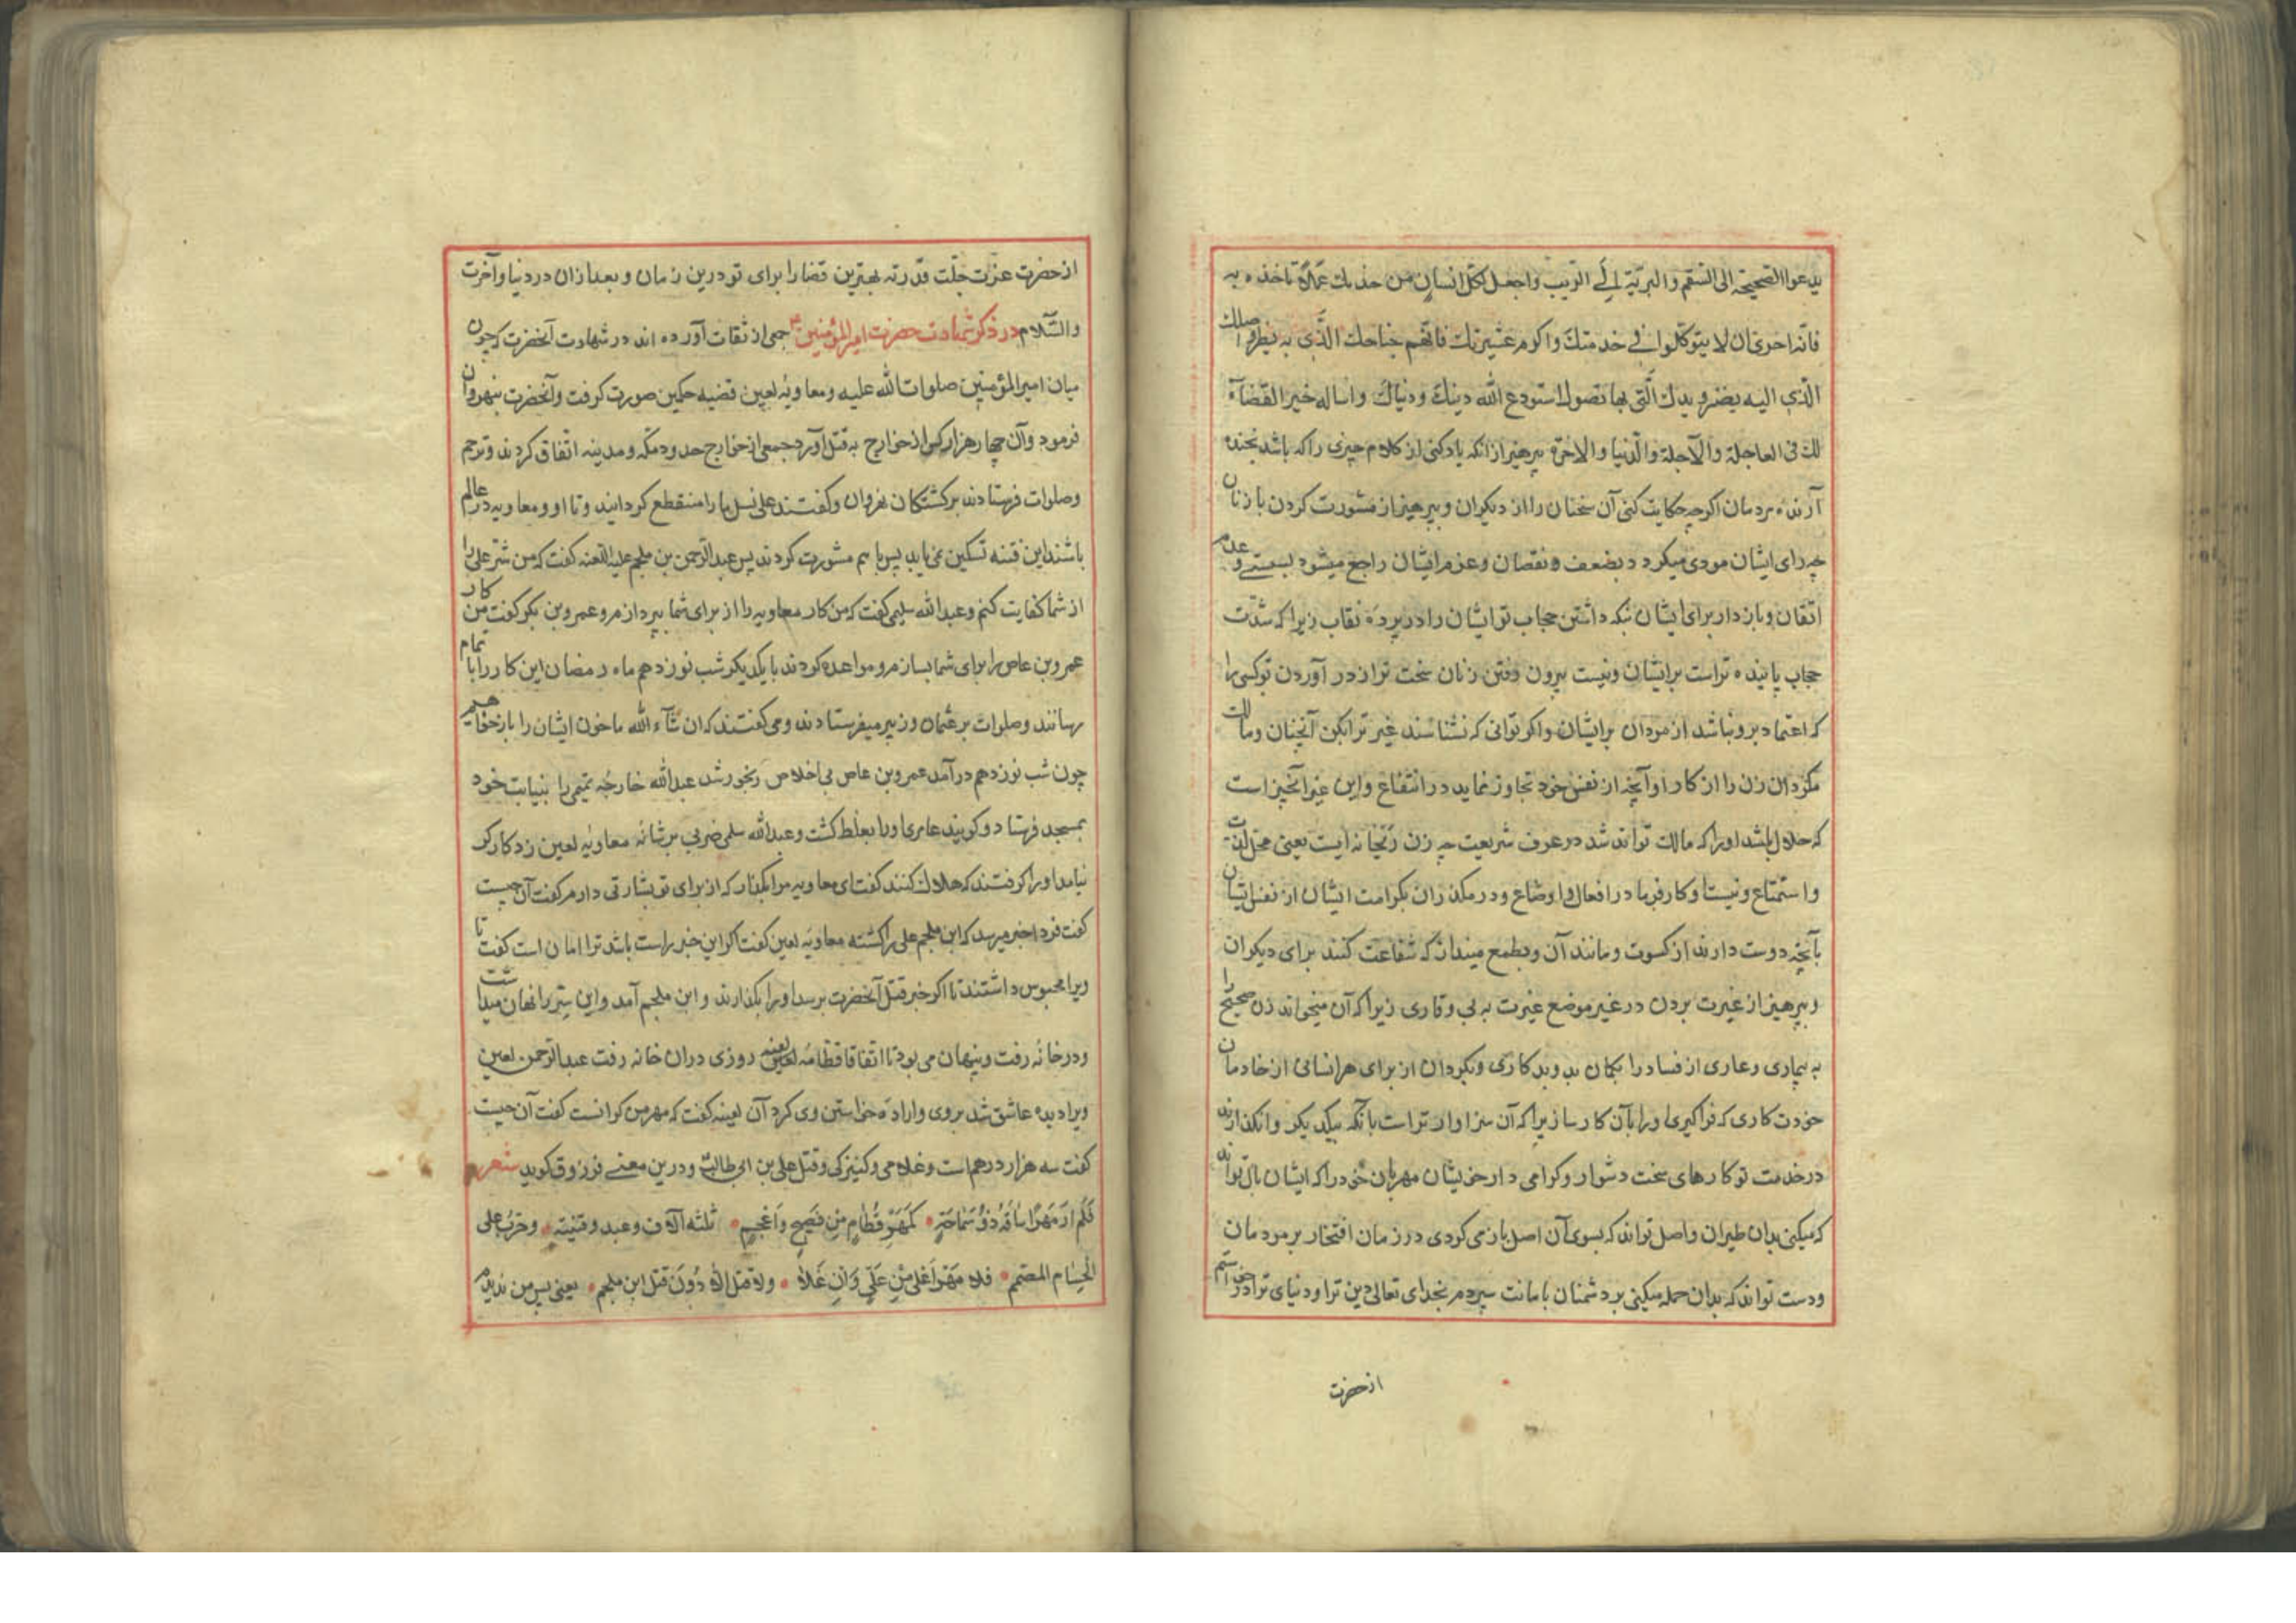 یدعوا الصحیحة الی السقم والبریّة إلی الریب واجعل لکلّ انسان من خدمك عملاً تاخذه به
فانّه احری ان لا یتوکّلوا فی خدمتك واکرم عشیرتك فانّهم جناحك الّذی به تطیر واصلك
الّذی الیه تصیر ویدك الّتی بها تصول استودع الله دینك ودنیاك واساله خیر القضاء
لك فی العاجلة والآجلة والدّنیا والاخرة بپرهیز از انکه یاد کنی از کلام چیزی را که باشد بخنده
آرنده مردمان اکرچه حکایت کنی آن سخنان را از دیکران وبپرهیز از مشورت کردن با زنان
چه رای ایشان مودی میکردد بضعف ونقصان وعزم ایشان راجع میشود بسستی وعدم
اتقان وبازدار برای ایشان نکه داشتن حجاب تو ایشان را در پردهٔ نقاب زیرا که شدّت
حجاب پاینده تر است بر ایشان ونیست بیرون رفتن زنان سخت تر از در آوردن تو کسی را
که اعتماد برو نباشد از مردان بر ایشان واکر توانی که نشناسند غیر ترا بکن آنچنان ومالك
مکردان زن را از کار او آنچه از نفس خود تجاوز نماید در انتفاع واین غیر آنچیز است
که حلال باشد او را که مالك تواند شد در عرف شریعت چه زن ریحانه ایست یعنی محل لذت
واستمتاع ونیست او کارفرما در افعال واوضاع ودر مکذران بکرامت ایشان از نفس ایشان
بآنچه دوست دارند از کسوت ومانند آن وبطمع مینداز که شفاعت کنند برای دیکران
وبپرهیز از غیرت بردن در غیر موضع غیرت به بی وقاری زیرا که آن میخواند زن صحیح را
به بیماری وعاری از فساد را بکمان بد وبدکاری وبکردان از برای هر انسانی از خادمان
خودت کاری که فراکیری او را بآن کار سازیرا که آن سزاوارتر است بآنکه بیکدیکر وانکذارند
در خدمت تو کارهای سخت دشوار وکرامی دار خویشان مهربان خود را که ایشان بال تواند
که میکنی بدان طیران واصل تواند که بسوی آن اصل باز می کردی در زمان افتخار بر مردمان
ودست تواند که بدان حمله میکنی بر دشمنان بامانت سپردم بخدای تعالی دین ترا ودنیای ترا درخواستم
از حضرت
از حضرت عزّت جلّت قدرته بهترین قضا را برای تو درین زمان وبعد از آن در دنیا وآخرت
والسّلام در ذکر شهادت حضرت امیرالمؤمنین ع جمعی از ثقات آورده اند در شهادت آنحضرت که چون
میان امیرالمؤمنین صلوات الله علیه ومعاویه لعین قضیه حکمین صورت کرفت وآنحضرت بنهروان
فرمود وآن چهار هزار کس از خوارج به قتل آورد جمعی از خوارج حدود مکّه ومدینه اتّفاق کردند وترحم
وصلوات فرستادند بر کشتکان نهروان وکفتند علی نسل ما را منقطع کردانید وتا او ومعاویه در عالم
باشند این فتنه تسکین نمی یابد پس با هم مشورت کردند پس عبدالرّحمن بن ملجم علیه اللعنه کفت که من شرّ علی را
از شما کفایت کنم وعبدالله سلیمی کفت که من کار معاویه را از برای شما بپردازم وعمرو بن بکر کفت من کار
عمرو بن عاص را برای شما بسازم ومواعده کردند با یکدیکر شب نوزدهم ماه رمضان این کار را باتمام
رسانند وصلوات بر عثمان وزبیر میفرستادند ومی کفتند که ان شاء الله ما خون ایشان را بازخواهیم
چون شب نوزدهم درآمد عمرو بن عاص بی اخلاص رنجور شد عبدالله خارجهٔ تمیمی را بنیابت خود
بمسجد فرستاد وکویند عامری او را بغلط کشت وعبدالله سلمی ضربی بر شانهٔ معاویه لعین زد کارکر
نیامد او را کرفتند که هلاك کنند کفت ای معاویه مرا بکذار که از برای تو بشارتی دارم کفت آن چیست
کفت فردا خبر میرسد که ابن ملجم علی را کشته معاویهٔ لعین کفت اکر این خبر راست باشد ترا امان است کفت تا
ویرا محبوس داشتند تا اکر خبر قتل آنحضرت برسد او را بکذارند وابن ملجم آمد واین سرّ را نهان میداشت
ودر خانه رفت وپنهان می بود تا اتفاقا قطّامهٔ لعینه روزی دران خانه رفت عبدالرّحمن لعین
ویرا دیده عاشق شد بروی وارادهٔ خواستن وی کرد آن لعینه کفت که مهر من کرانست کفت آن چیست
کفت سه هزار درهم است وغلامی وکنیزکی وقتل علی بن ابی طالب ودرین معنی فرزوق کوید شعر
فَلَم اَرَ مَهرًا ساقَهُ ذو سَماحَةٍ کَمَهرِ قُطّامٍ مِن فَصیحٍ واَعجمٍ ثلثه آلاف وعبد وقینة وضرب علی
الحُسام المصمم فلا مَهرَ اَغلی مِن عَلیٍّ وَاِن غَلاٰ ولا قتل الاّ دُونَ قتل ابن ملجم یعنی پس من ندیدم